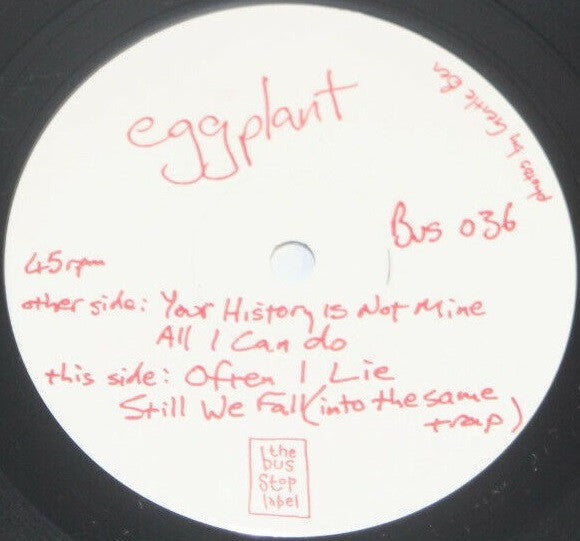 eggplant
photos by Gentle Ben
Bus 036
45rpm
other side: Your History is Not Mine
All I Can do
this side: Often I Lie
Still We Fall (into the same
trap)
the
bus
Stop
label